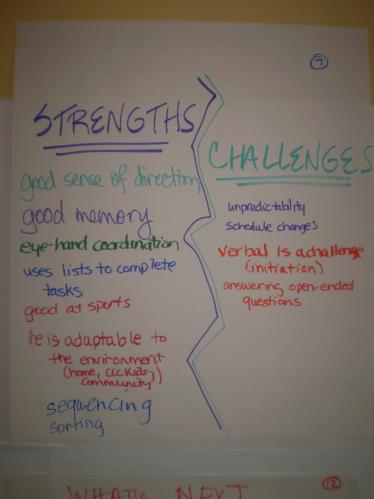 7
STRENGTHS
good sense of direction
good memory
eye-hand coordination
uses lists to complete
tasks
good at sports
he is adaptable to
the environment
(home, CCCKids,
community)
sequencing
sorting
CHALLENGES
unpredictability
schedule changes
verbal is a challenge
(initiation)
answering open-ended
questions
12
WHAT'S NEXT